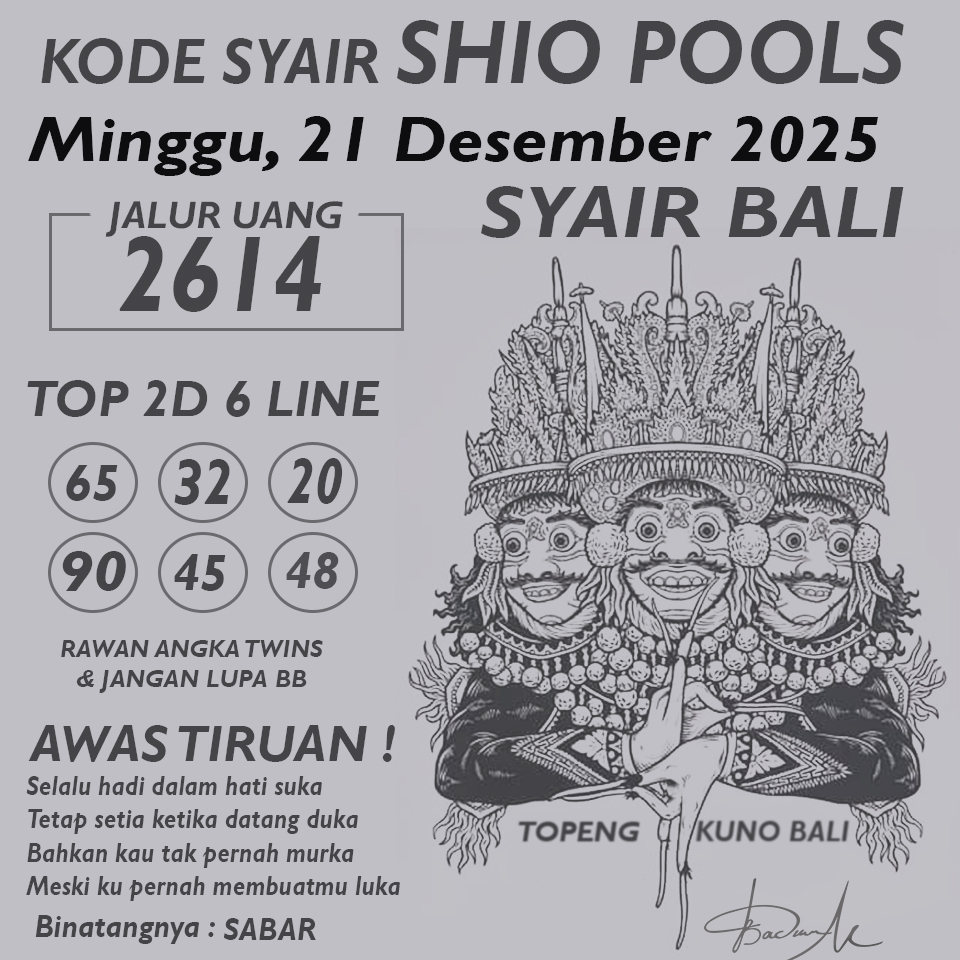 KODE SYAIR SHIO POOLS
Minggu, 21 Desember 2025
SYAIR BALI
JALUR UANG
2614
TOP 2D 6 LINE
65 32 20
90 45 48
RAWAN ANGKA TWINS
& JANGAN LUPA BB
AWAS TIRUAN !
Selalu hadi dalam hati suka
Tetap setia ketika datang duka
Bahkan kau tak pernah murka
Meski ku pernah membuatmu luka
Binatangnya : SABAR
TOPENG KUNO BALI